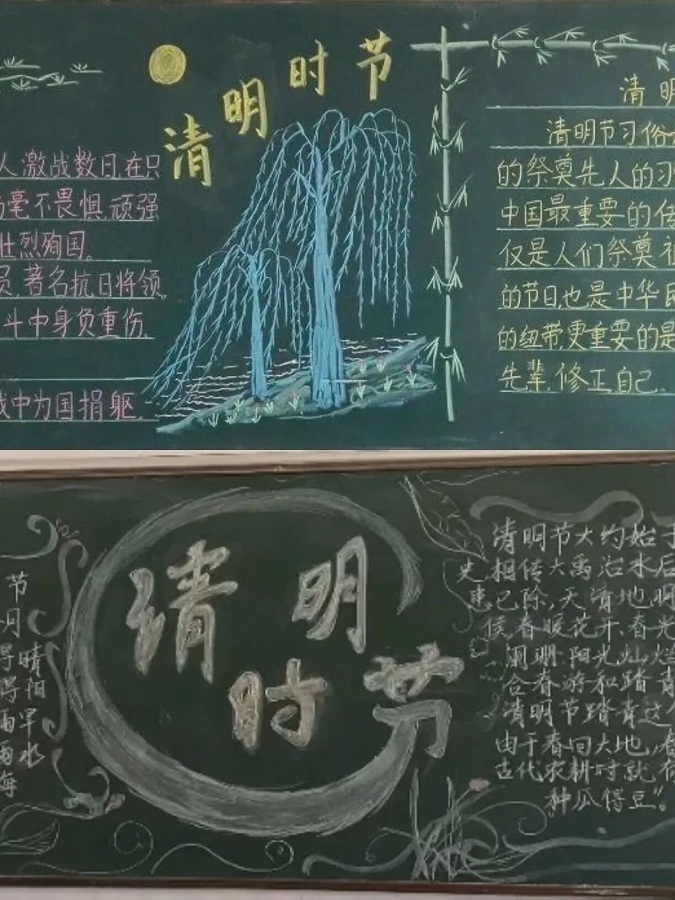 清明时节
人,激战数日,在只
毫不畏惧,顽强
壮烈殉国。
员,著名抗日将领,
斗中身负重伤,
战中为国捐躯.
清明
清明节习俗
的祭奠先人的习
中国最重要的传
仅是人们祭奠祖
的节日,也是中华民
的纽带,更重要的是
先辈,修正自己.
清明时节
节
月 晴
得 相
得 旱
雨 水
海
清明节大约始于
史相传大禹治水后
患已除,天清地明
候,春暖花开,春光
阑珊,阳光灿烂
合春游和踏青
清明节踏青这个
由于春回大地,春
古代农耕时就有
种瓜得豆”。